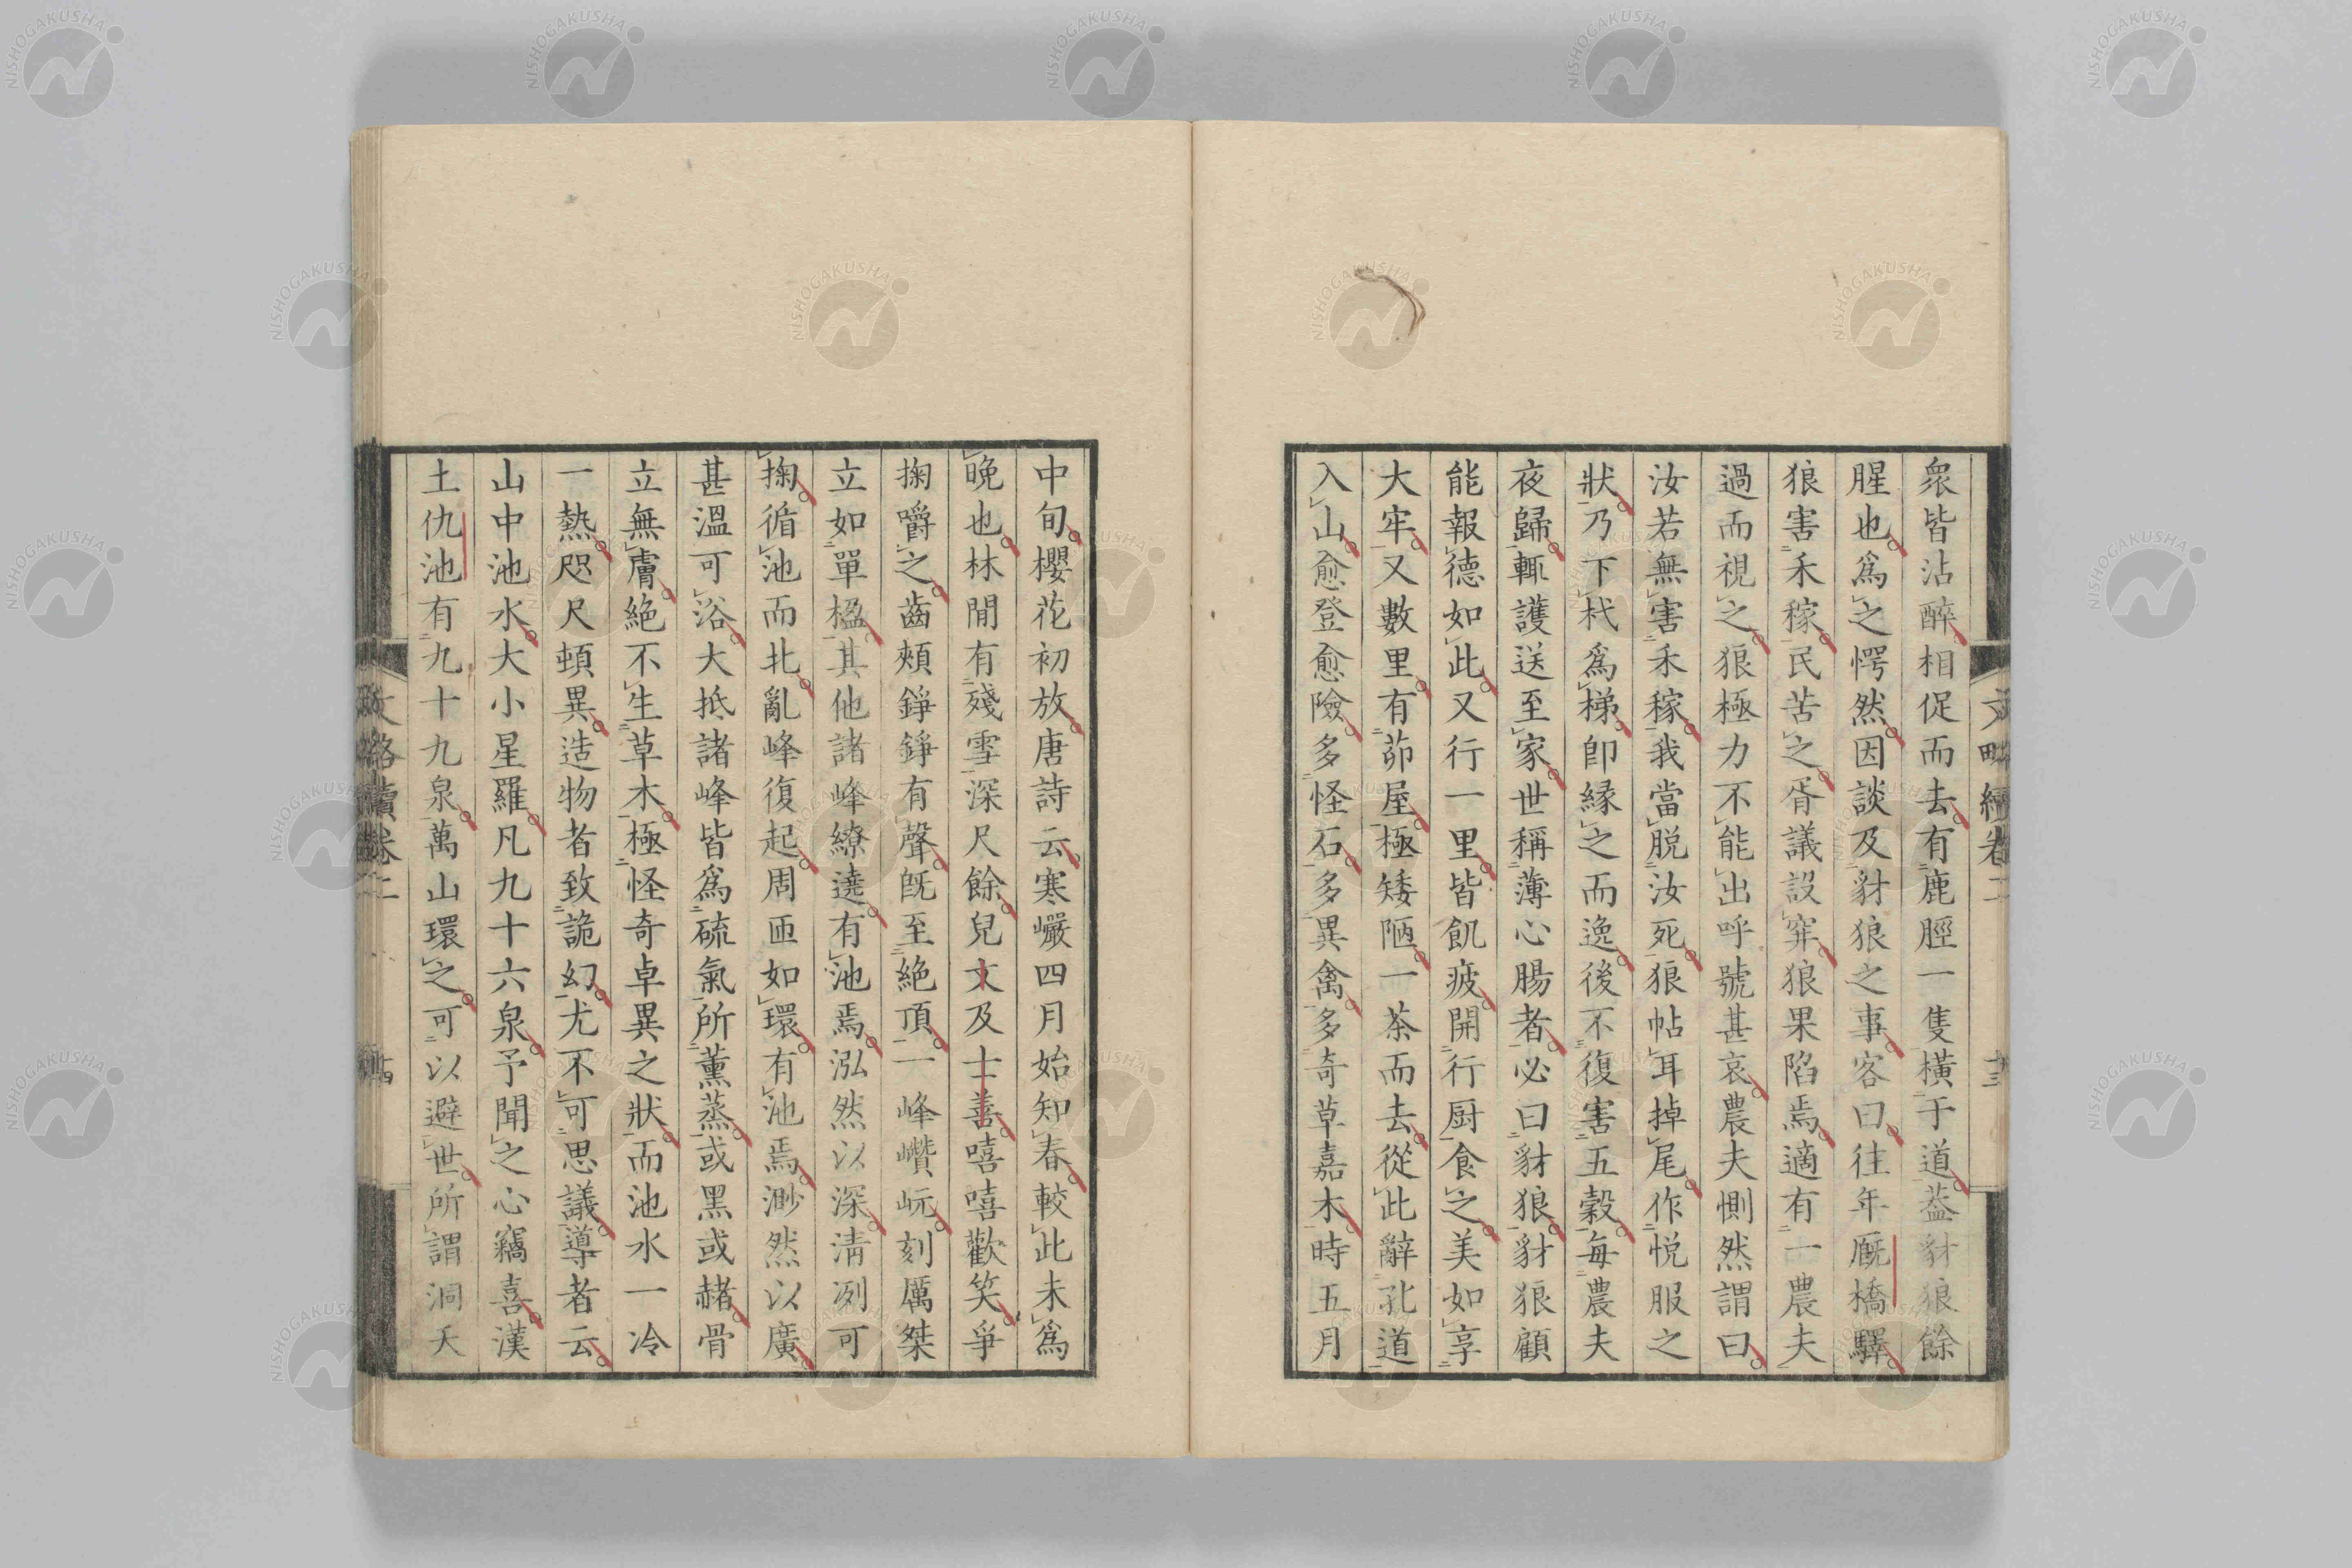 衆皆沾醉相促而去有鹿脛一隻横于道葢豺狼餘
腥也爲之愕然因談及豺狼之事客曰往年厩橋驛
狼害禾稼民苦之胥議設穽狼果陷焉適有一農夫
過而視之狼極力不能出呼號甚哀農夫惻然謂曰
汝若無害禾稼我當脱汝死狼帖耳掉尾作悦服之
狀乃下杙爲梯卽縁之而逸後不復害五穀每農夫
夜歸輒護送至家世稱薄心腸者必曰豺狼豺狼顧
能報德如此又行一里皆飢疲開行厨食之美如享
大牢又數里有茆屋極矮陋一茶而去從此辭孔道
入山愈登愈險多怪石多異禽多奇草嘉木時五月
中旬櫻花初放唐詩云寒巖四月始知春較此未爲
晩也林間有殘雪深尺餘兒文及士善嘻嘻歡笑爭
掬嚼之齒頰錚錚有聲旣至絶頂一峰巑岏刻厲桀
立如單楹其他諸峰繚遶有池焉泓然以深淸冽可
掬循池而北亂峰復起周匝如環有池焉渺然以廣
甚溫可浴大抵諸峰皆爲硫氣所薫蒸或黑或赭骨
立無膚絶不生草木極怪奇卓異之狀而池水一冷
一熱咫尺頓異造物者致詭幻尤不可思議導者云
山中池水大小星羅凡九十六泉予聞之心竊喜漢
土仇池有九十九泉萬山環之可以避世所謂洞天